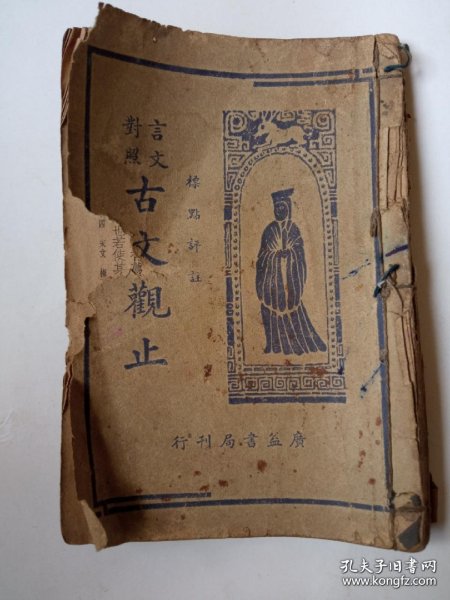 言文
對照
古文觀止
標點評註
宋文
也若使其
廣益書局刊行
孔夫子旧书网
www.kongfz.com